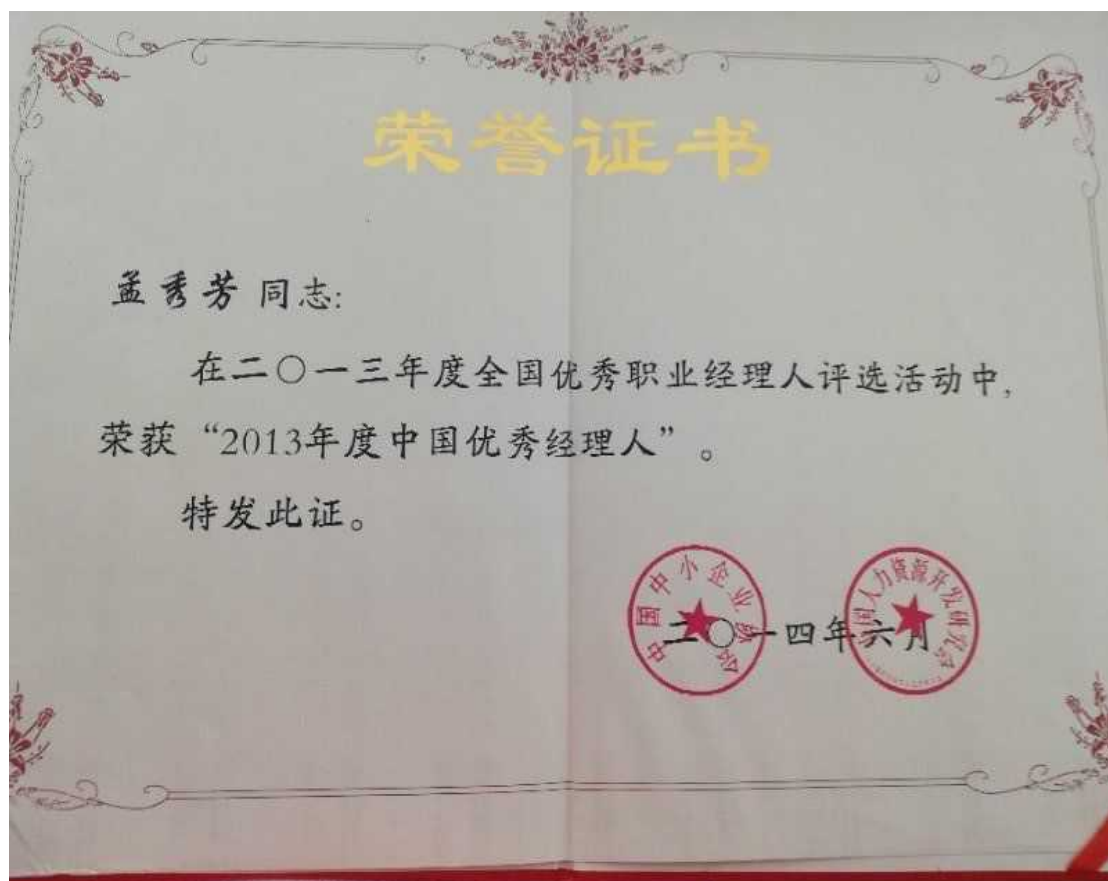 荣誉证书
孟秀芳 同志:
在二〇一三年度全国优秀职业经理人评选活动中,
荣获“2013年度中国优秀经理人”。
特发此证。
中国中小企业协会
国人力资源开发研究会
二〇一四年六月